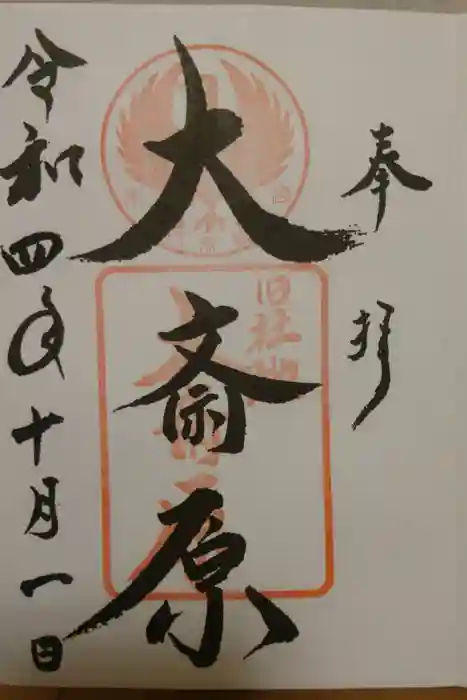 奉拝
大斎原
旧社地
大斎原
令和四年十月一日